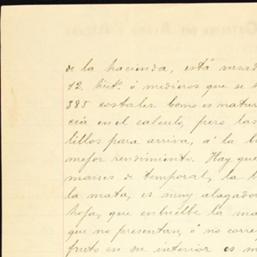 de la hacienda, está
12. ó medieros que se
385 costales como es matur
cia en el calculo, pero las
tillos para arriva, á la
mejor rendimiento. Hay que
maices de temporal, la
la mata, es muy alagador
hoja, que envuelbe la ma
que no presentan, ó no corres
fruto en su interior es m